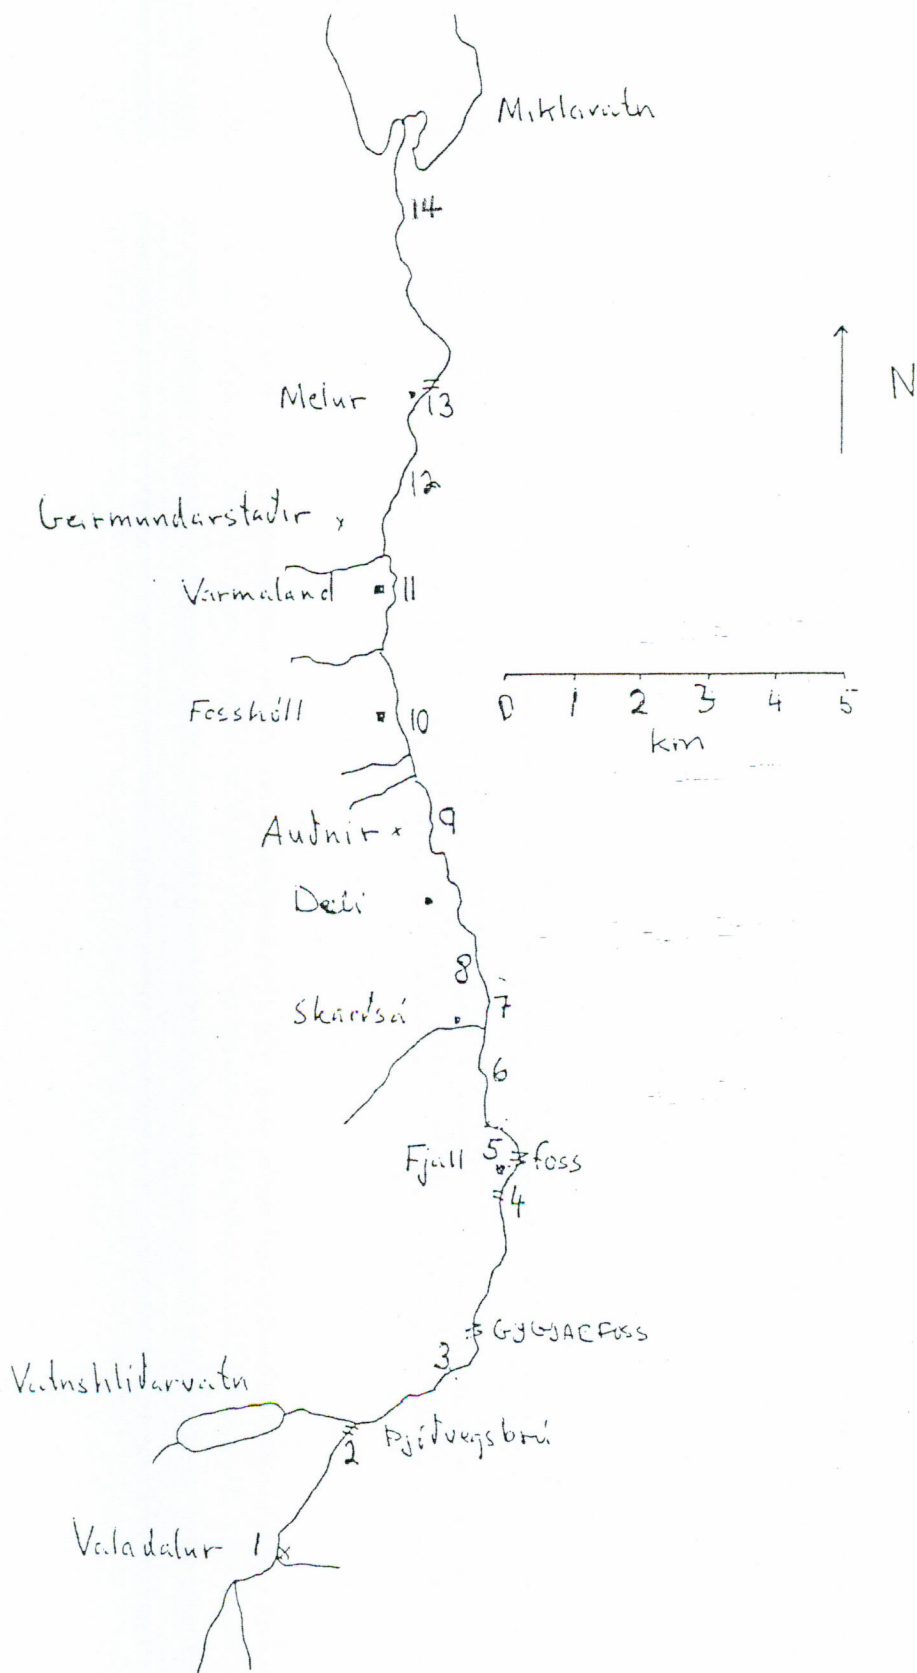 Miklavatn
14
N
Melur
13
12
Geirmundarstaðir
Varmaland
11
0 1 2 3 4 5
km
Fosshóll
10
9
Auðnir
Dæli
8
7
Skarðsá
6
Fjall
5
foss
4
GYGJARFOSS
3
Vatnshlíðarvatn
Þjóðvegsbrú
2
Valadalur
1